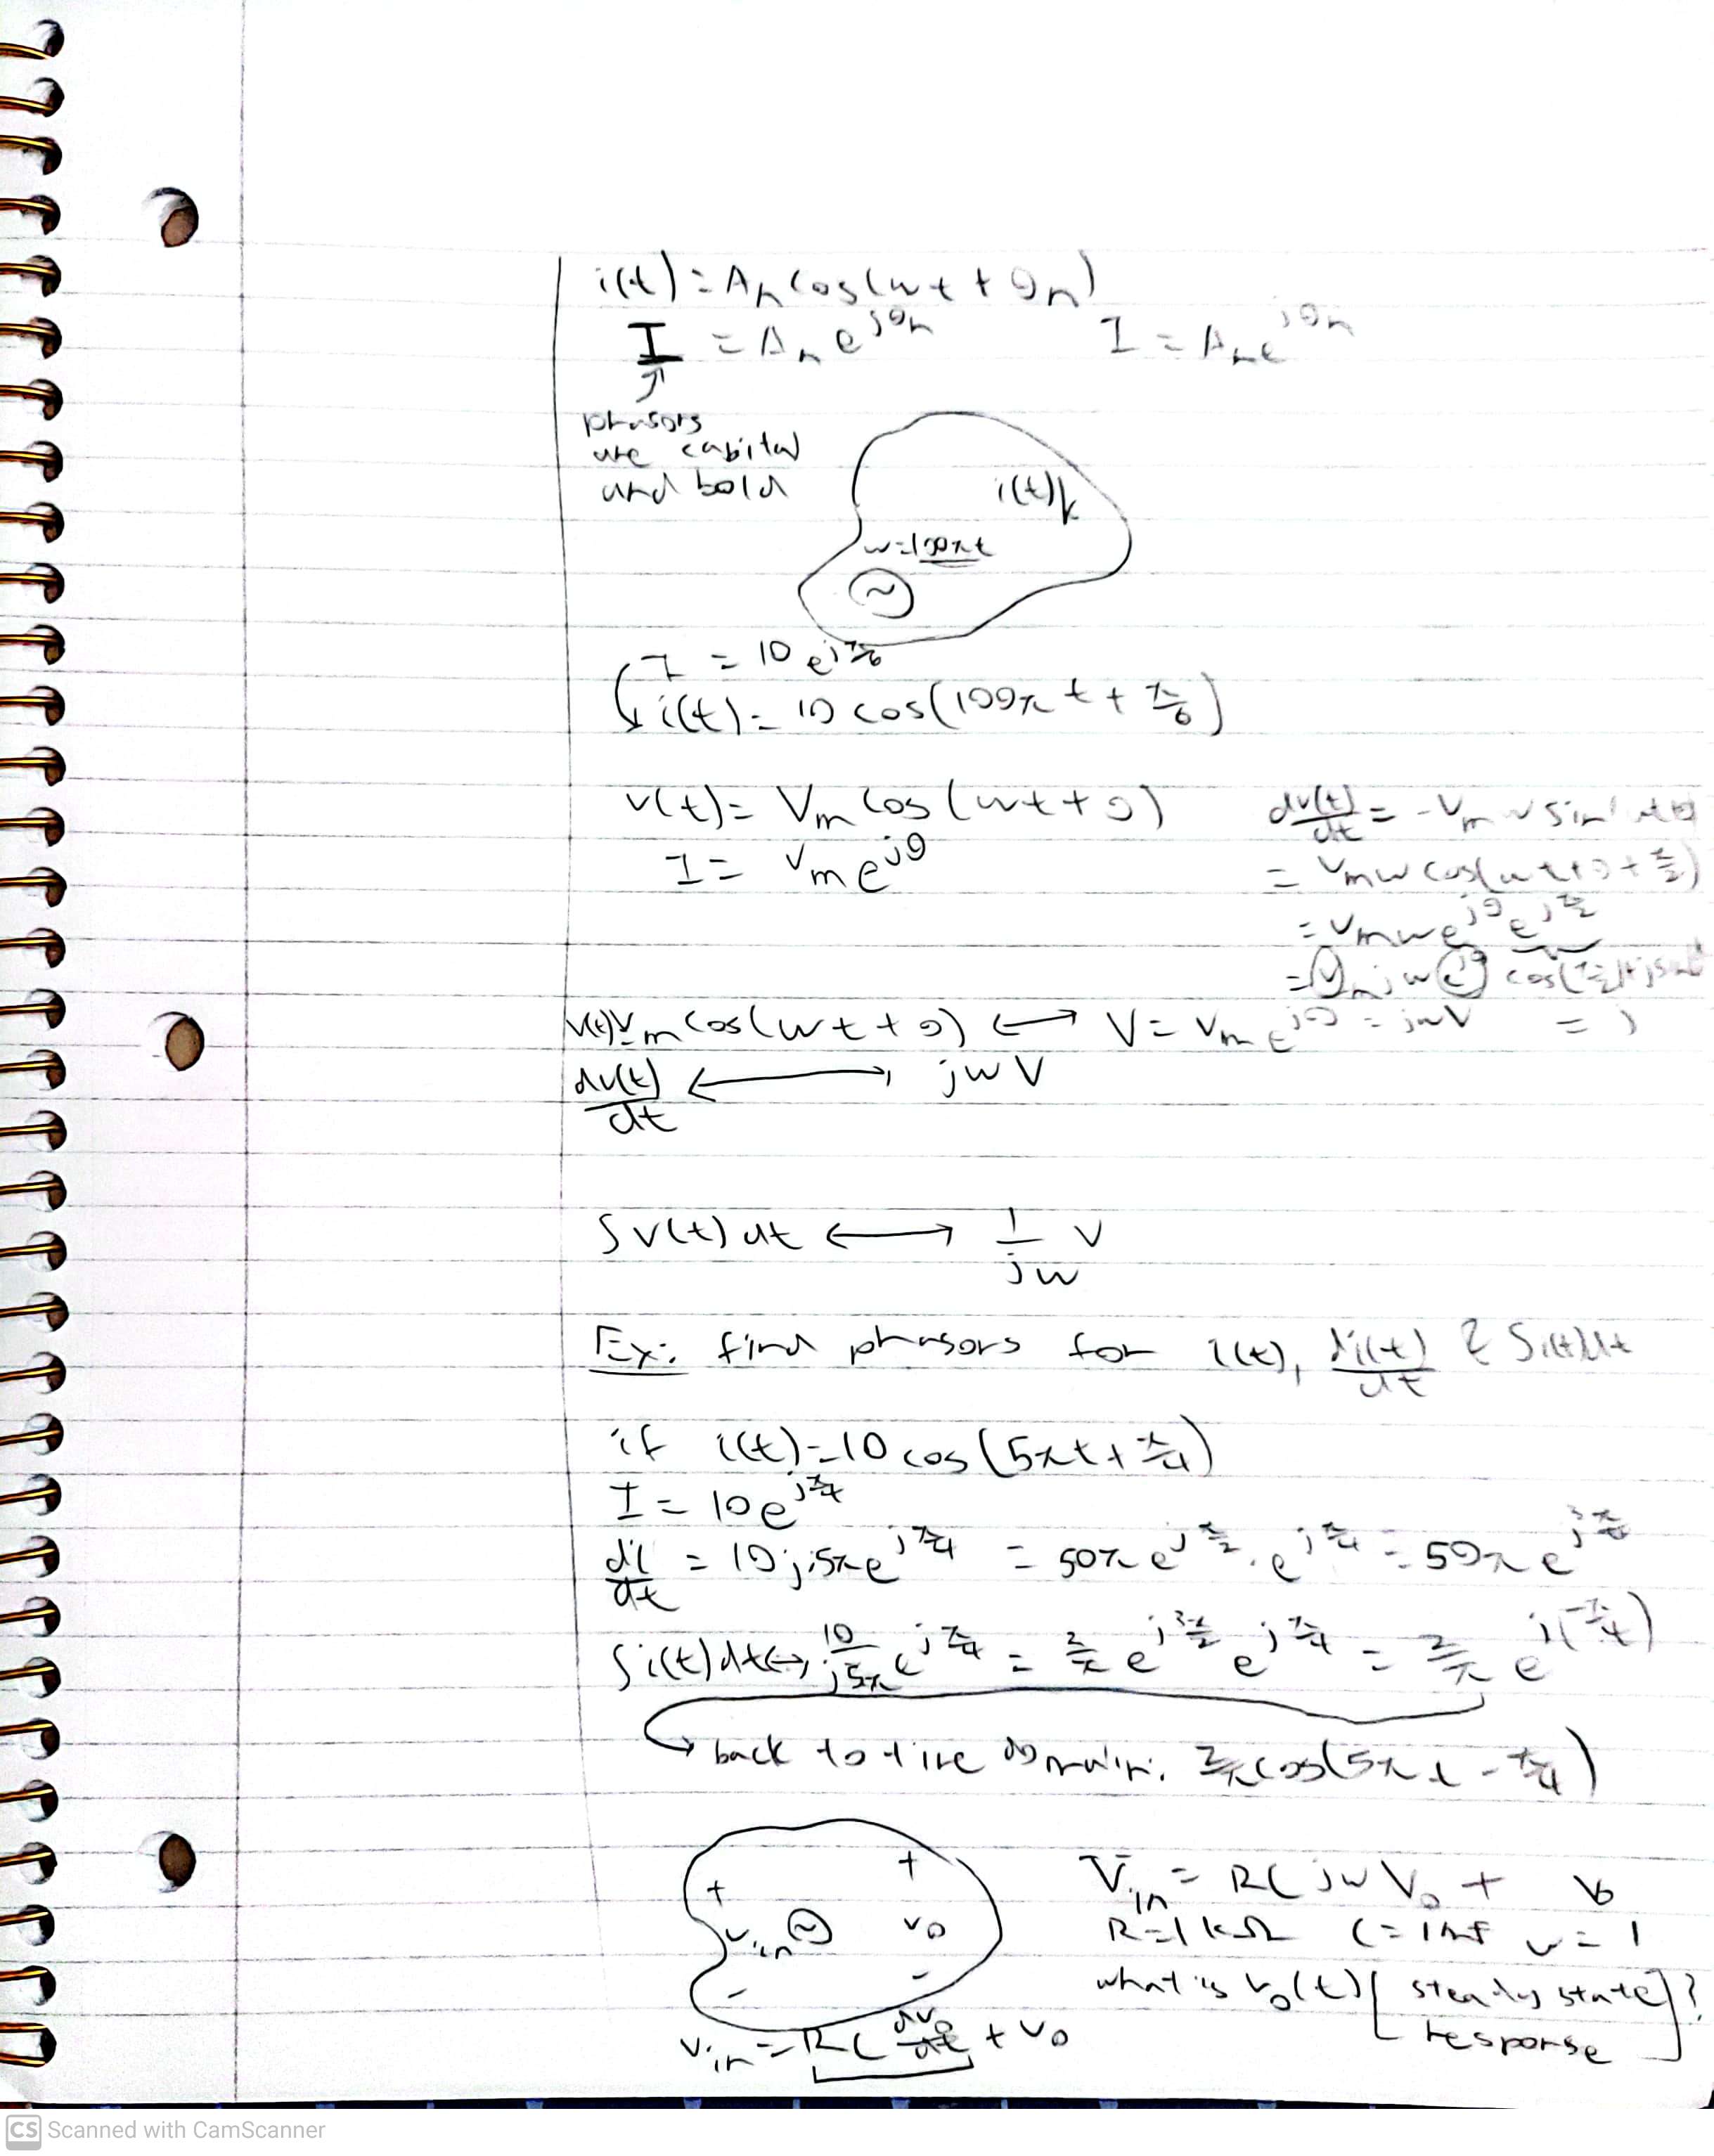 i(t) = An cos(wt + θn)
I = An e^jθn    I = An e^jθn
phasors
are capital
and bold
i(t)
w=100πt
~
I = 10 e^jπ/6
i(t) = 10 cos(100πt + π/6)
v(t) = Vm cos(wt + θ)    dv(t)/dt = -Vm w sin(wt+θ)
I = Vm e^jθ    = Vm w cos(wt+θ+π/2)
= Vm w e^jθ e^jπ/2
= Vm jw e^jθ    cos(π/2)+jsin
v(t)=Vm cos(wt + θ) ⟷ V = Vm e^jθ = jwV    = j
dv(t)/dt ⟷ jwV
∫v(t)dt ⟷ 1/jw V
Ex: find phasors for i(t), di(t)/dt & ∫i(t)dt
if i(t) = 10 cos(5πt + π/4)
I = 10e^jπ/4
di/dt = 10j·5πe^jπ/4 = 50π e^jπ/2 · e^jπ/4 = 50π e^j3π/4
∫i(t)dt ↔ 10/j5π e^jπ/4 = 2/π e^j3π/2 e^jπ/4 = 2/π e^j(-π/4)
→ back to time domain: 2/π cos(5πt - π/4)
+ vin ~ - + vo -
Vin = RC jw Vo + Vo
R = 1kΩ C = 1mF w = 1
what is vo(t) [steady state
response]?
vin = RC dvo/dt + vo
CS Scanned with CamScanner